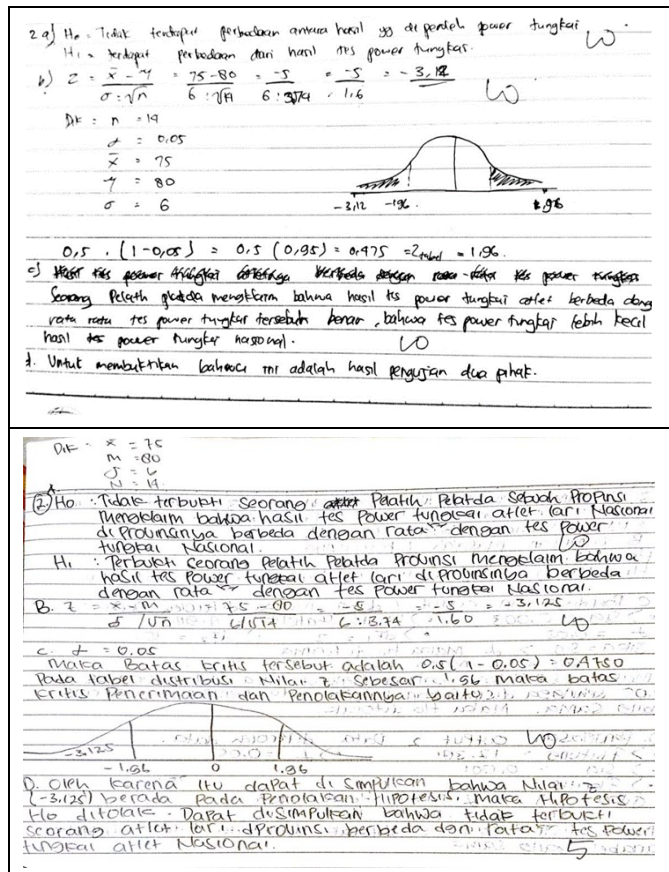 2 a) Ho = Tidak terdapat perbedaan antara hasil yg di peroleh power tungkai 10
H1 = terdapat perbedaan dari hasil tes power tungkai.
b) Z = x̄ - μ / σ : √n = 75 - 80 / 6 : √14 = -5 / 6 : 3,74 = -5 / 1,6 = -3,12 10
Dik : n = 14
α = 0,05
x̄ = 75
μ = 80
σ = 6
-3,12 -1,96 1,96
0,5 . (1-0,05) = 0,5 (0,95) = 0,475 = Z tabel = 1,96.
c)
Seorang Pelatih pelatda mengklaim bahwa hasil tes power tungkai atlet berbeda dng
rata rata tes power tungkai tersebut benar, bahwa tes power tungkai lebih kecil
hasil tes power tungkai nasional. 10
d. Untuk membuktikan bahwa ini adalah hasil pengujian dua pihak.
Dik x̄ = 75
m = 80
σ = 6
N = 14
2 Ho : Tidak terbukti seorang Pelatih Pelatda Sebuah Propinsi
mengklaim bahwa hasil tes Power tungkai atlet lari Nasional
di Provinsinya berbeda dengan rata" dengan tes Power
tungkai Nasional. 10
H1 : Terbukti seorang Pelatih Pelatda Provinsi mengklaim bahwa
hasil tes Power tungkai atlet lari di Probinsinya berbeda
dengan rata" dengan tes Power tungkai Nasional.
B. Z = x̄ - m / σ / √n = 75 - 80 / 6/√14 = -5 / 6 : 3.74 = -5 / 1.60 = -3,125 10
C. α = 0.05
Maka Batas kritis tersebut adalah 0.5 (1 - 0.05) = 0.4750
Pada tabel distribusi Nilai z sebesar 1.96 maka batas
kritis Penerimaan dan Penolakannya yaitu :
10
-3.125 -1.96 0 1.96
D. Oleh karena itu dapat di simpulkan bahwa Nilai z
(-3.125) berada Pada Penolakan Hipotesis, maka Hipotesis
Ho ditolak. Dapat disimpulkan bahwa tidak terbukti
seorang atlet lari diProvinsi berbeda dgn rata" tes Power
tungkai atlet Nasional. 5